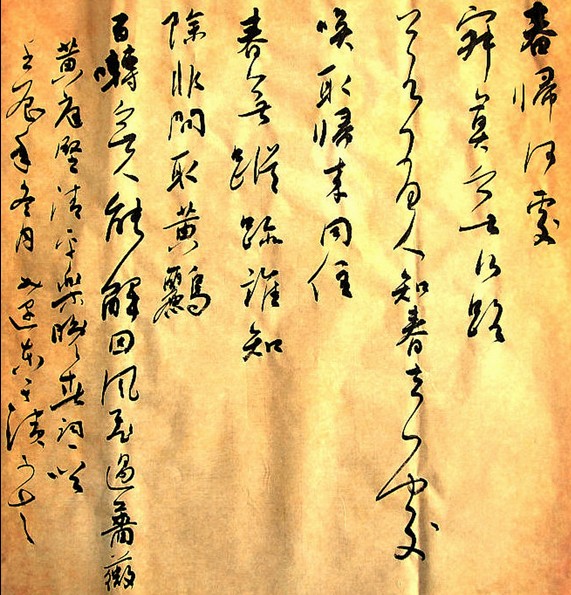 春歸何處
寂寞無行路
若有人知春去處
喚取歸來同住
春無蹤跡誰知
除非問取黃鸝
百囀無人能解因風飛過薔薇
黃庭堅清平樂晚春詞
壬辰年冬月